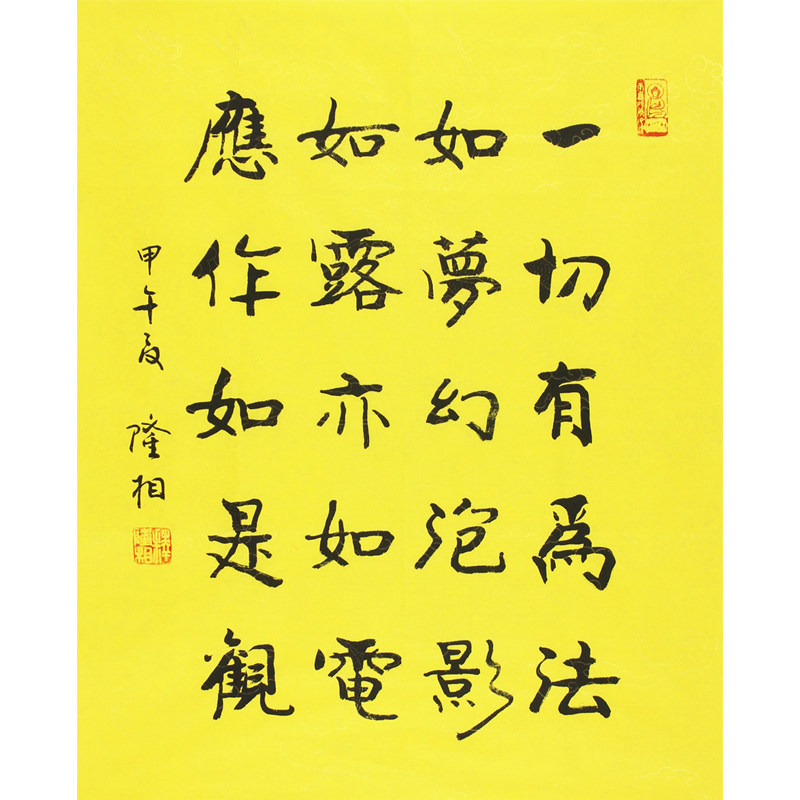 一切有為法
如夢幻泡影
如露亦如電
應作如是觀
甲午夏 隆相